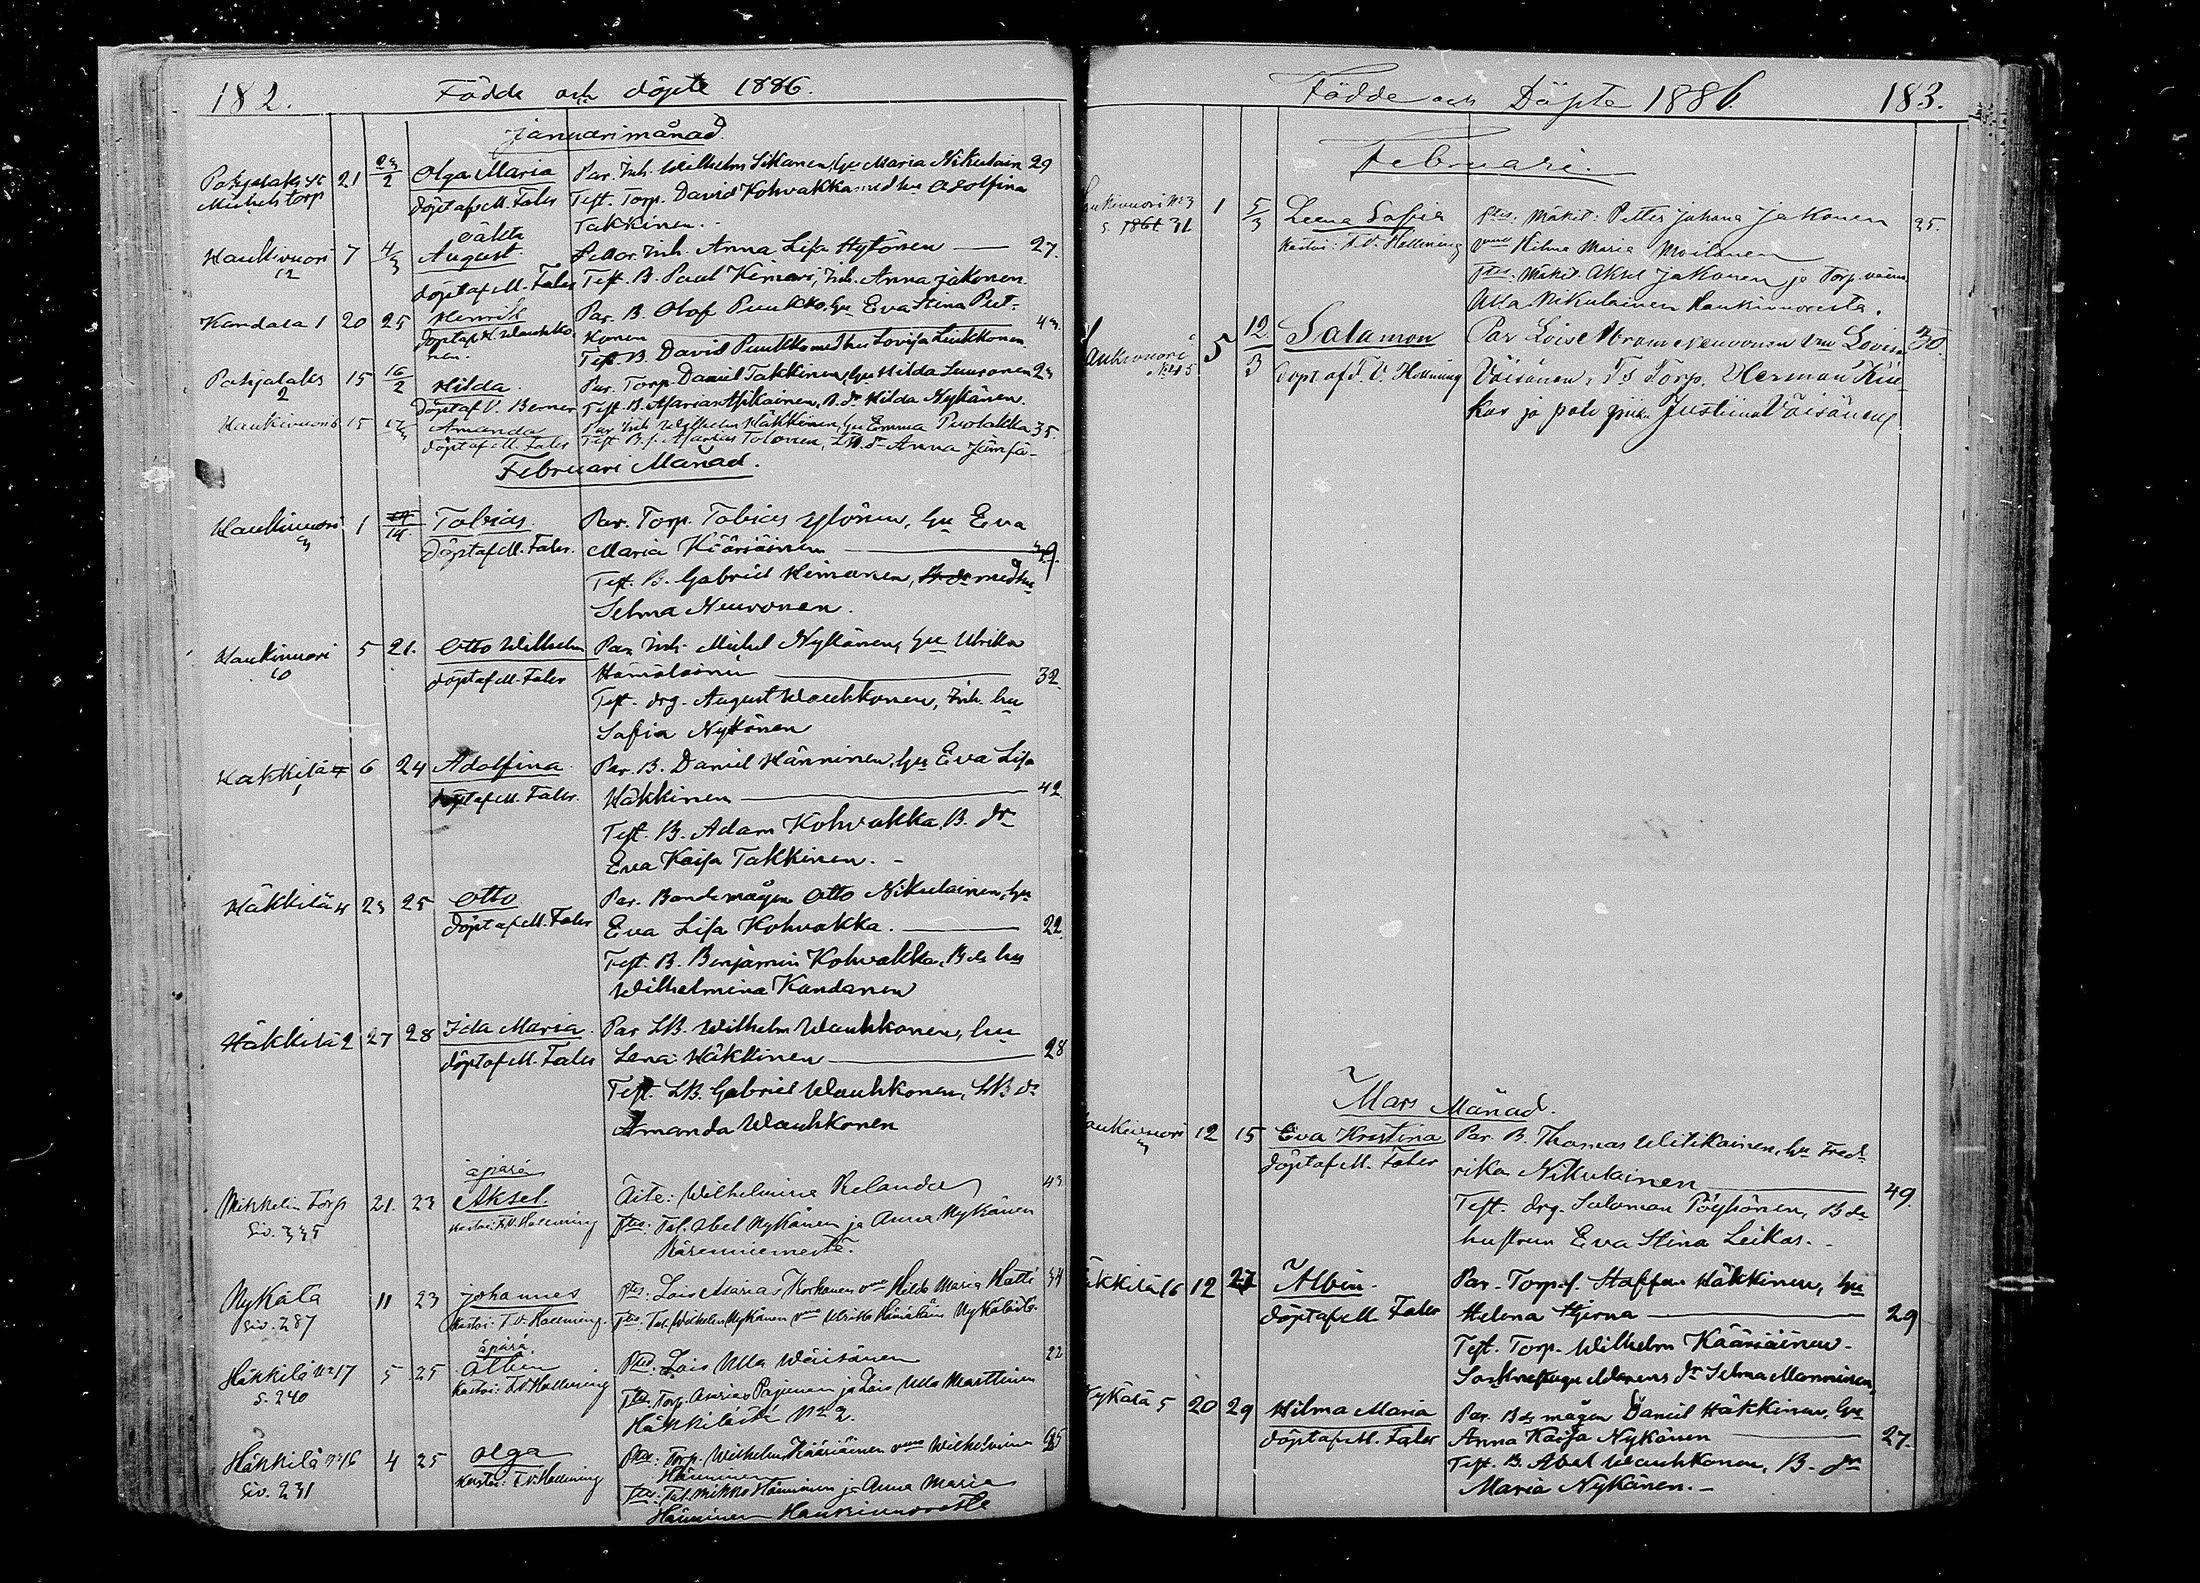 182.
Födde och döpte 1886.
Januari månad.
Pohjalaks
Michels torp
21
23/2
Olga Maria
döpt af M. Faler
Par. Inh. Wilhelm Sikanen, hu Maria Nikulain
29
Test. Torp. David Kohvakka med hu Adolfina
Takkinen.
Haukivuori
12
7
4/3
oäkta
August
döpt af M. Faler
Anna Lisa Nykönen
27.
Test. B. Paul Heinari, Inh. Anna Jakonen.
Kandala 1
20
25
Henrik
döpt af H. Wauhko-
nen.
Par. B. Olof Puukko, hu Eva Stina Put-
konen
43.
Test. B. David Puukko med hu Lovisa Liukkonen
Pohjalaks
2
15
16/2
Hilda.
Döpt af V. Berner
Par. Torp. Daniel Takkinen, hu Hilda Luusonen
23
Test. B. Hilda Nykänen.
Haukivuori
15
Amanda
döpt af M. Faler
Par. Inh. Wilhelm Häkkinen, hu Emma Puolakka
35.
Anna
Februari Månad.
Haukivuori
3
1
14.
Tobias.
Döpt af M. Faler.
Par. Torp. Tobias Ylönen, hu Eva
Maria Kääriäinen
Test. B. Gabriel Heimonen, med hu
Selma Neuvonen.
Haukivuori
10
5
21.
Otto Wilhelm
döpt af M. Faler
Par. Inh. Michel Nykänen, hu Ulrika
Hämäläinen
32.
Test. drg. August Wauhkonen, Inh. hu
Sofia Nykänen
Häkkilä
6
24
Adolfina.
döpt af M. Faler.
Par. B. Daniel Hänninen, hu Eva Lisa
Häkkinen
42
Test. B. Adam Kohvakka, B. dr
Eva Kaisa Takkinen. -
Häkkilä 4
23
25
Otto
döpt af M. Faler
Par. Bondemågen Otto Nikulainen, hu
Eva Lisa Kohvakka.
22.
Test. B. Benjamin Kohvakka, Bds hu
Wilhelmina Kandanen
Häkkilä 2
27
28
Ida Maria.
döpt af M. Faler
Par. LB. Wilhelm Wauhkonen, hu
Lena Häkkinen
28
Test. LB. Gabriel Wauhkonen, LB dr
Amanda Wauhkonen
Mikkelin Torp
Siv. 335
21.
23
äpärä
Aksel.
Kastoi: F.V. Hollming
Äite: Wilhelmina Relander
43
Tts: Tal. Abel Nykänen ja Anna Nykänen
Nykälä
Siv. 287
11
23
Johannes
Kastoi: F.V. Hollming.
Vts: Lois Korhonen vmo Hilda Maria Hatti
34
Tts: Tal. Wilhelm Nykänen vmo Ulrika Hämäläin Nykäläst.
Häkkilä No 17
S. 240
5
25
äpärä.
Albin
Kastoi: F.V. Hollming
Lois Ulla Wäisänen
22
Tts: Torp. Pajunen ja Lois Ulla Marttinen
Häkkilästä No 2.
Häkkilä No 16
Siv. 231
4
25
Olga
Kastoi: F.V. Hollming
Torp. Wilhelm Kääriäinen vmo Wilhelmina
Hänninen
Tts: Tal. Mikko Hänninen ja Anna Maria
Hänninen Haukivuoresta
Födde och Döpte 1886.
183.
Februari.
Haukivuori No 3
s. 31
1
5/3
Leena Sofia
Kastoi: F.V. Hollming
Vts: Mäkit: Petter Juhana Jakonen
35.
vmo Hilma Maria Moilanen
Tts: Mäkit. Aksel Jakonen ja Torp. vaimo
Ulla Nikulainen Haukivuoresta.
Haukivuori
No 45
5
12/3
Salamon
Döpt af F. V. Hollming
Par Lois Abram Neuvonen vmo Loviisa
30.
Väisänen, Ts Torp. Herman Kiu-
kas ja palv piika Justiina Väisänen
Mars Månad.
Haukivuori
3
12
15
Eva Kristina
döpt af M. Faler
Par. B. Thomas Witikainen, hu Fred-
rika Nikulainen
49.
Test. drg. Salomon Pöyhönen, B ds
hustrun Eva Stina Leikas. -
Häkkilä 16
12
27
Albin.
döpt af M. Faler
Par. Torp. f. Staffan Häkkinen, hu
Helena Hjerna
29
Test. Torp. Wilhelm Kääriäinen.
Sockne dr Selma Manninen,
Nykälä 5
20
29
Hilma Maria
döpt af M. Faler
Par. Bds mågen Daniel Häkkinen, hu
Anna Kaisa Nykänen
27.
Test. B. Abel Wauhkonen, B. dr
Maria Nykänen. -